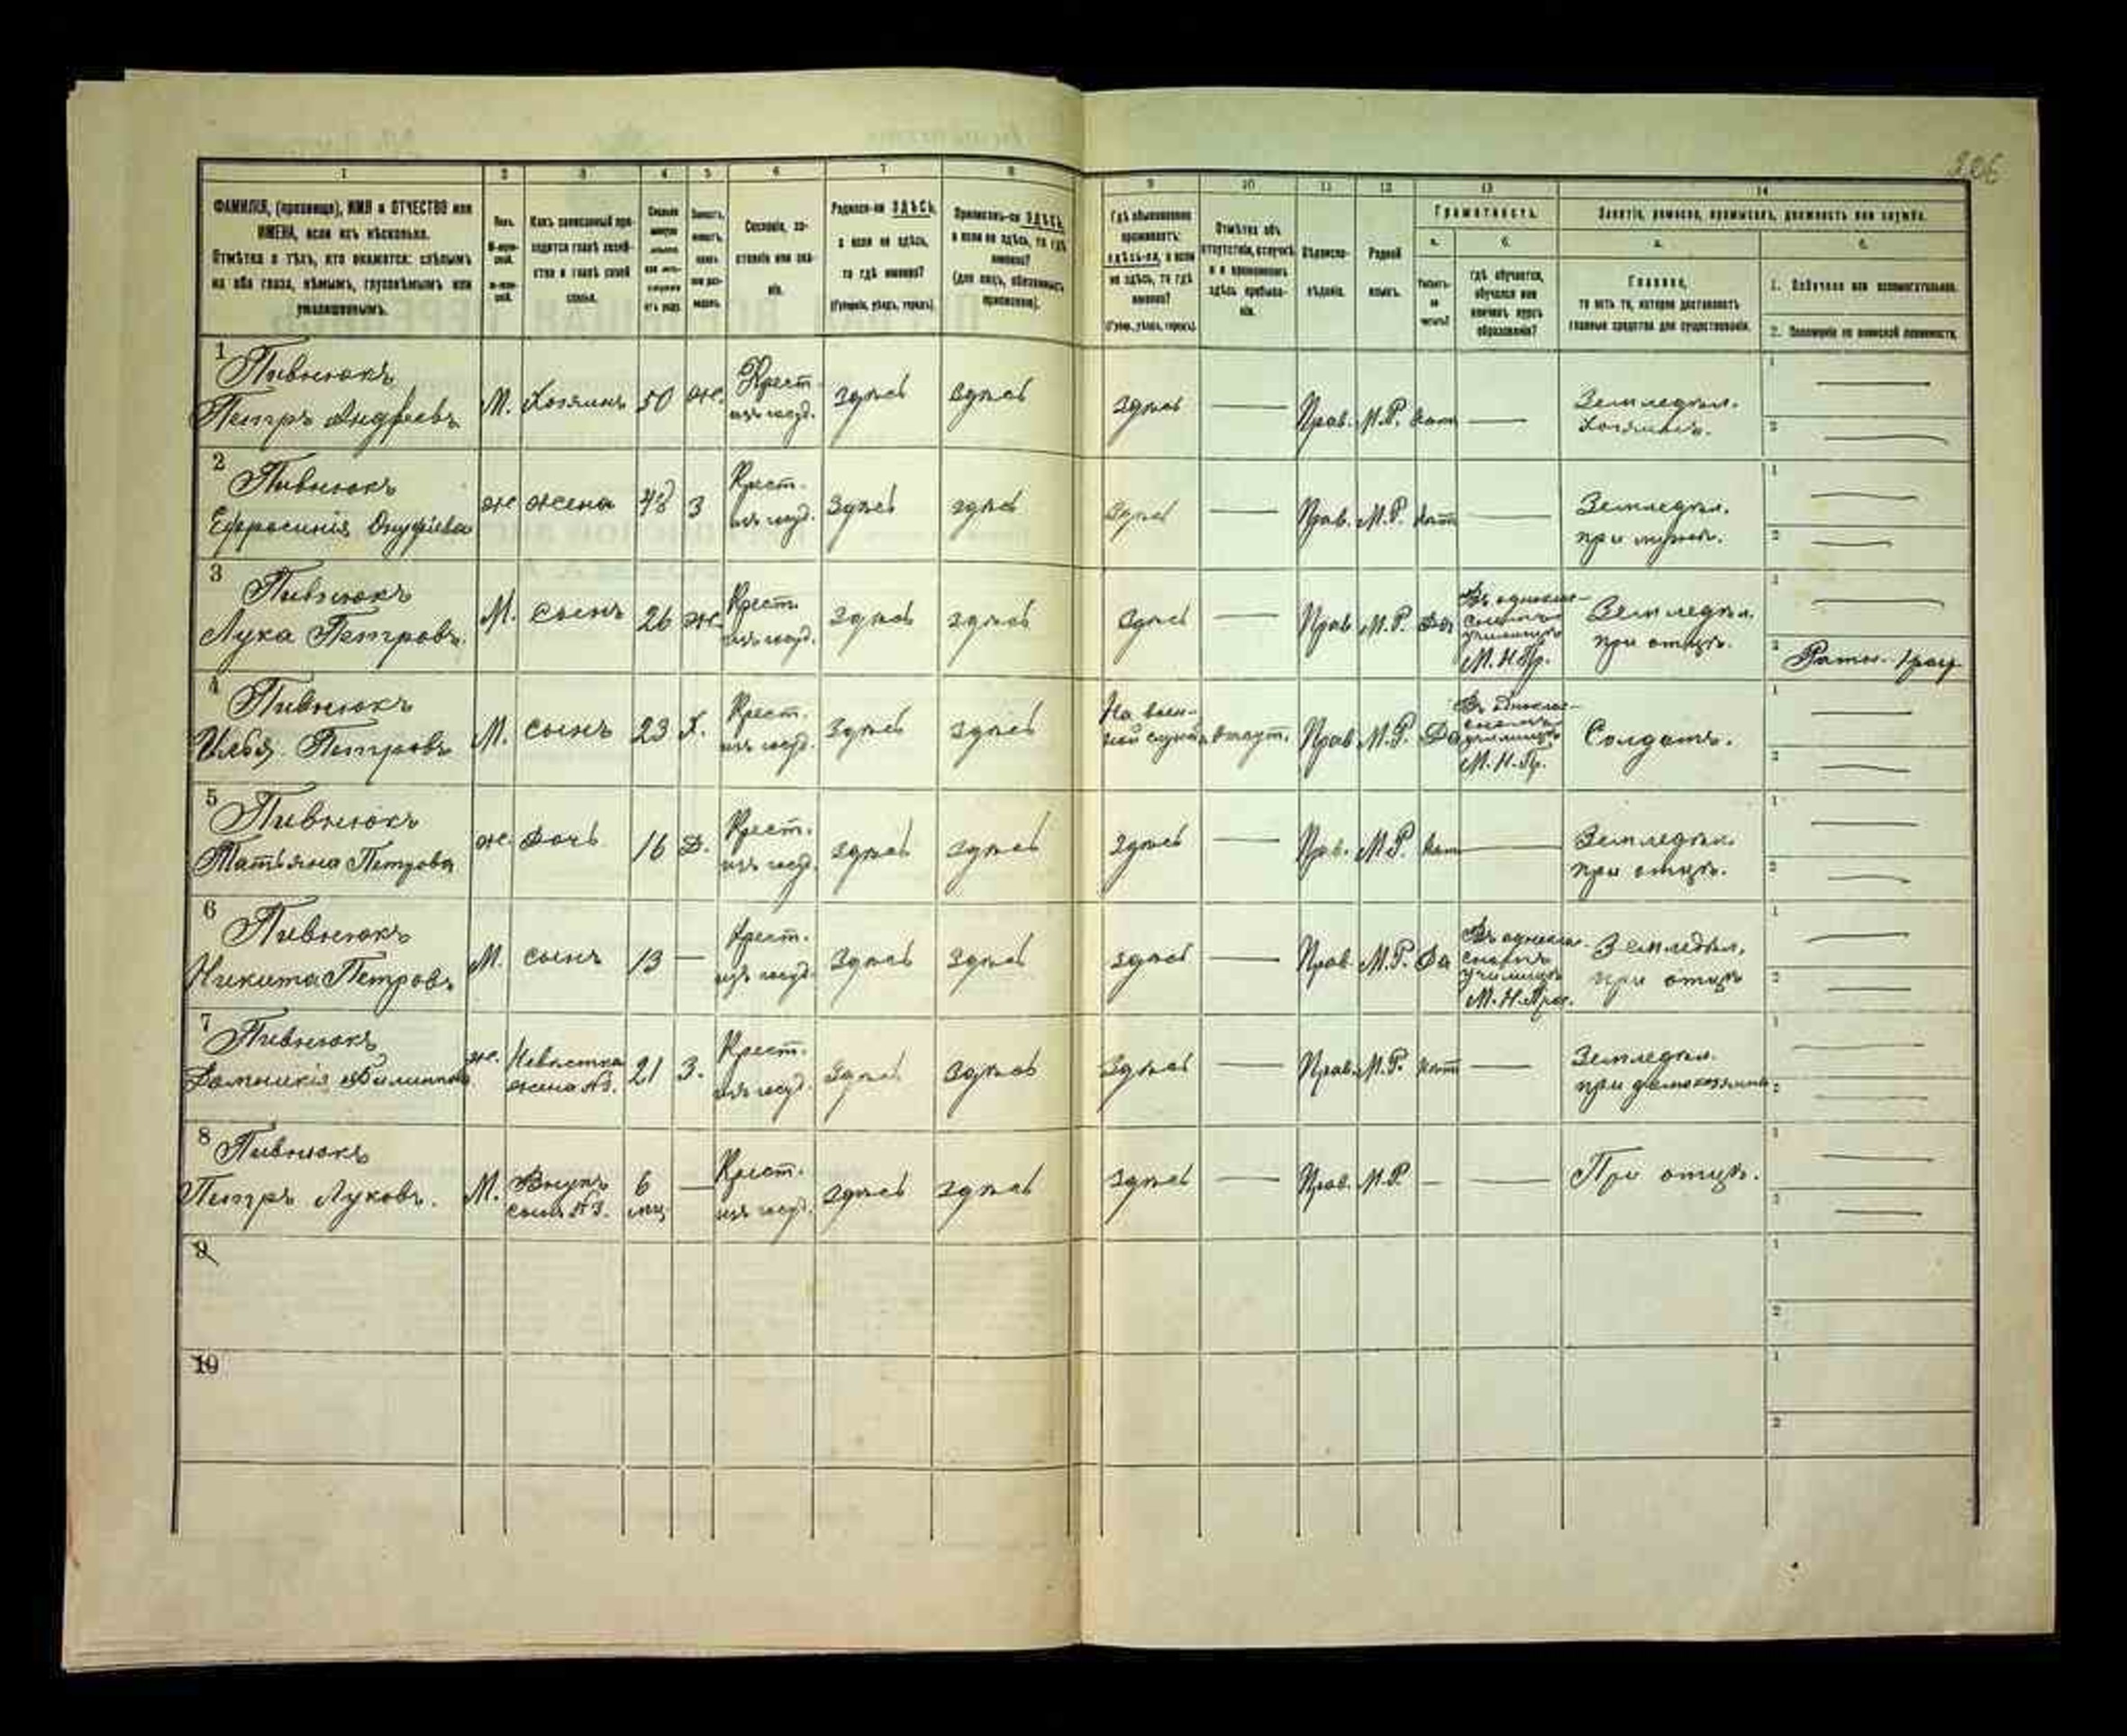 206
1 2 3 4 5 6 7 8 9 10 11 12 13 14
ФАМИЛІЯ, (прозвище), ИМЯ и ОТЧЕСТВО или
ИМЕНА, если ихъ нѣсколько.
Отмѣтка о тѣхъ, кто окажется: слѣпымъ
на оба глаза, нѣмымъ, глухонѣмымъ или
умалишеннымъ.
Полъ.
Какъ записанный при-
ходится главѣ хозяй-
ства и главѣ своей
семьи.
Сословіе, со-
стояніе или зва-
ніе.
Родился-ли ЗДѢСЬ,
а если не здѣсь,
то гдѣ именно?
(Губернія, уѣздъ, городъ).
Приписанъ-ли ЗДѢСЬ,
а если не здѣсь, то гдѣ
именно?
(для лицъ, обязанныхъ
припискою).
Гдѣ обыкновенно
проживаетъ:
здѣсь-ли, а если
не здѣсь, то гдѣ
именно?
(Губер., уѣздъ, городъ).
Отмѣтка объ
отсутствіи, отлучкѣ
и о временномъ
здѣсь пребыва-
ніи.
Вѣроиспо-
вѣданіе.
Родной
языкъ.
Грамотность.
а.
Умѣетъ-
ли
читать?
б.
гдѣ обучается,
обучался или
кончилъ курсъ
образованія?
Занятіе, ремесло, промыселъ, должность или служба.
а.
Главное,
то есть то, которое доставляетъ
главныя средства для существованія.
б.
1. Побочное или вспомогательное.
2. Положеніе по воинской повинности.
1 Пивнюкъ
Петръ Андреевъ М. Хозяинъ 50 ж. Крест. изъ госуд. здѣсь здѣсь здѣсь — Прав. М.Р. нѣтъ — Земледѣл. Хозяинъ.
2 Пивнюкъ
Ефросинія Онуфріева ж жена 48 З Крест. изъ госуд. здѣсь здѣсь здѣсь — Прав. М.Р. нѣтъ — Земледѣл. при мужѣ.
3 Пивнюкъ
Лука Петровъ. М. сынъ 26 ж. Крест. изъ госуд. здѣсь здѣсь здѣсь — Прав. М.Р. Да Въ однокла-сномъ училищѣ М.Н.Пр. Земледѣл. при отцѣ.
4 Пивнюкъ
Илья Петровъ М. сынъ 23 Х. Крест. изъ госуд. здѣсь здѣсь На воен-ной служб. отсут. Прав. М.Р. Да училищѣ М.Н.Пр. Солдатъ.
5 Пивнюкъ
Татьяна Петрова ж. Дочь 16 Д. Крест. изъ госуд. здѣсь здѣсь здѣсь — Прав. М.Р. нѣтъ — Земледѣл. при отцѣ.
6 Пивнюкъ
Никита Петровъ М. сынъ 13 — Крест. изъ госуд. здѣсь здѣсь здѣсь — Прав. М.Р. Да Въ однокла-сномъ училищѣ М.Н.Прос. Земледѣл. при отцѣ
7 Пивнюкъ
Домникія ж. Невѣстка жена №3. 21 З. Крест. изъ госуд. здѣсь здѣсь здѣсь — Прав. М.Р. нѣтъ — Земледѣл. при домохозяинѣ
8 Пивнюкъ
Петръ Луковъ. М. Внукъ сынъ №3. 6 мц — Крест. изъ госуд. здѣсь здѣсь здѣсь — Прав. М.Р — — При отцѣ.
9
10